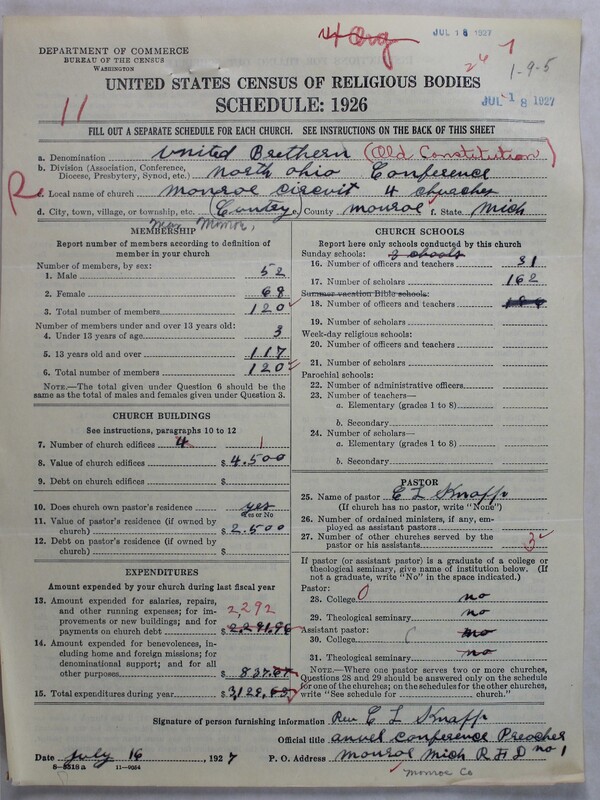 4 Org
JUL 18 1927
DEPARTMENT OF COMMERCE
BUREAU OF THE CENSUS
WASHINGTON
1-9-5
UNITED STATES CENSUS OF RELIGIOUS BODIES
SCHEDULE: 1926
JUL 18 1927
11
FILL OUT A SEPARATE SCHEDULE FOR EACH CHURCH. SEE INSTRUCTIONS ON THE BACK OF THIS SHEET
a. Denomination United Brethern (Old Constitution)
b. Division (Association, Conference, Diocese, Presbytery, Synod, etc.) North Ohio Conference
R c. Local name of church Monroe Circuit 4 Churches
d. City, town, village, or township, etc. (Contry) e. County Monroe f. State Mich
Monroe,
MEMBERSHIP
Report number of members according to definition of member in your church
Number of members, by sex:
1. Male 52
2. Female 68
3. Total number of members 120
Number of members under and over 13 years old:
4. Under 13 years of age 3
5. 13 years old and over 117
6. Total number of members 120
NOTE.—The total given under Question 6 should be the same as the total of males and females given under Question 3.
CHURCH BUILDINGS
See instructions, paragraphs 10 to 12
7. Number of church edifices 4 1
8. Value of church edifices $ 4.500
9. Debt on church edifices $
10. Does church own pastor's residence? yes
Yes or No
11. Value of pastor's residence (if owned by church) $ 2.500
12. Debt on pastor's residence (if owned by church) $
EXPENDITURES
Amount expended by your church during last fiscal year
13. Amount expended for salaries, repairs, and other running expenses; for improvements or new buildings; and for payments on church debt 2292 $ 2,291,96
14. Amount expended for benevolences, including home and foreign missions; for denominational support; and for all other purposes $ 837.67
15. Total expenditures during year $ 3,129,63
CHURCH SCHOOLS
Report here only schools conducted by this church
Sunday schools: 3 schools
16. Number of officers and teachers 31
17. Number of scholars 162
Summer vacation Bible schools:
18. Number of officers and teachers
19. Number of scholars
Week-day religious schools:
20. Number of officers and teachers
21. Number of scholars
Parochial schools:
22. Number of administrative officers
23. Number of teachers—
a. Elementary (grades 1 to 8)
b. Secondary
24. Number of scholars—
a. Elementary (grades 1 to 8)
b. Secondary
PASTOR
25. Name of pastor E L Knapp
(If church has no pastor, write "None")
26. Number of ordained ministers, if any, employed as assistant pastors
27. Number of other churches served by the pastor or his assistants 3
If pastor (or assistant pastor) is a graduate of a college or theological seminary, give name of institution below. (If not a graduate, write "No" in the space indicated.)
Pastor:
28. College 0 no
29. Theological seminary no
Assistant pastor:
30. College no
31. Theological seminary no
NOTE.—Where one pastor serves two or more churches, Questions 28 and 29 should be answered only on the schedule for one of the churches; on the schedules for the other churches, write "See schedule for church."
Signature of person furnishing information Rev E L Knapp
Official title anuel Conference Preacher
Date July 16, 1927 P. O. Address Monroe Mich R F D no 1
8-5518a 11-9054
Monroe Co